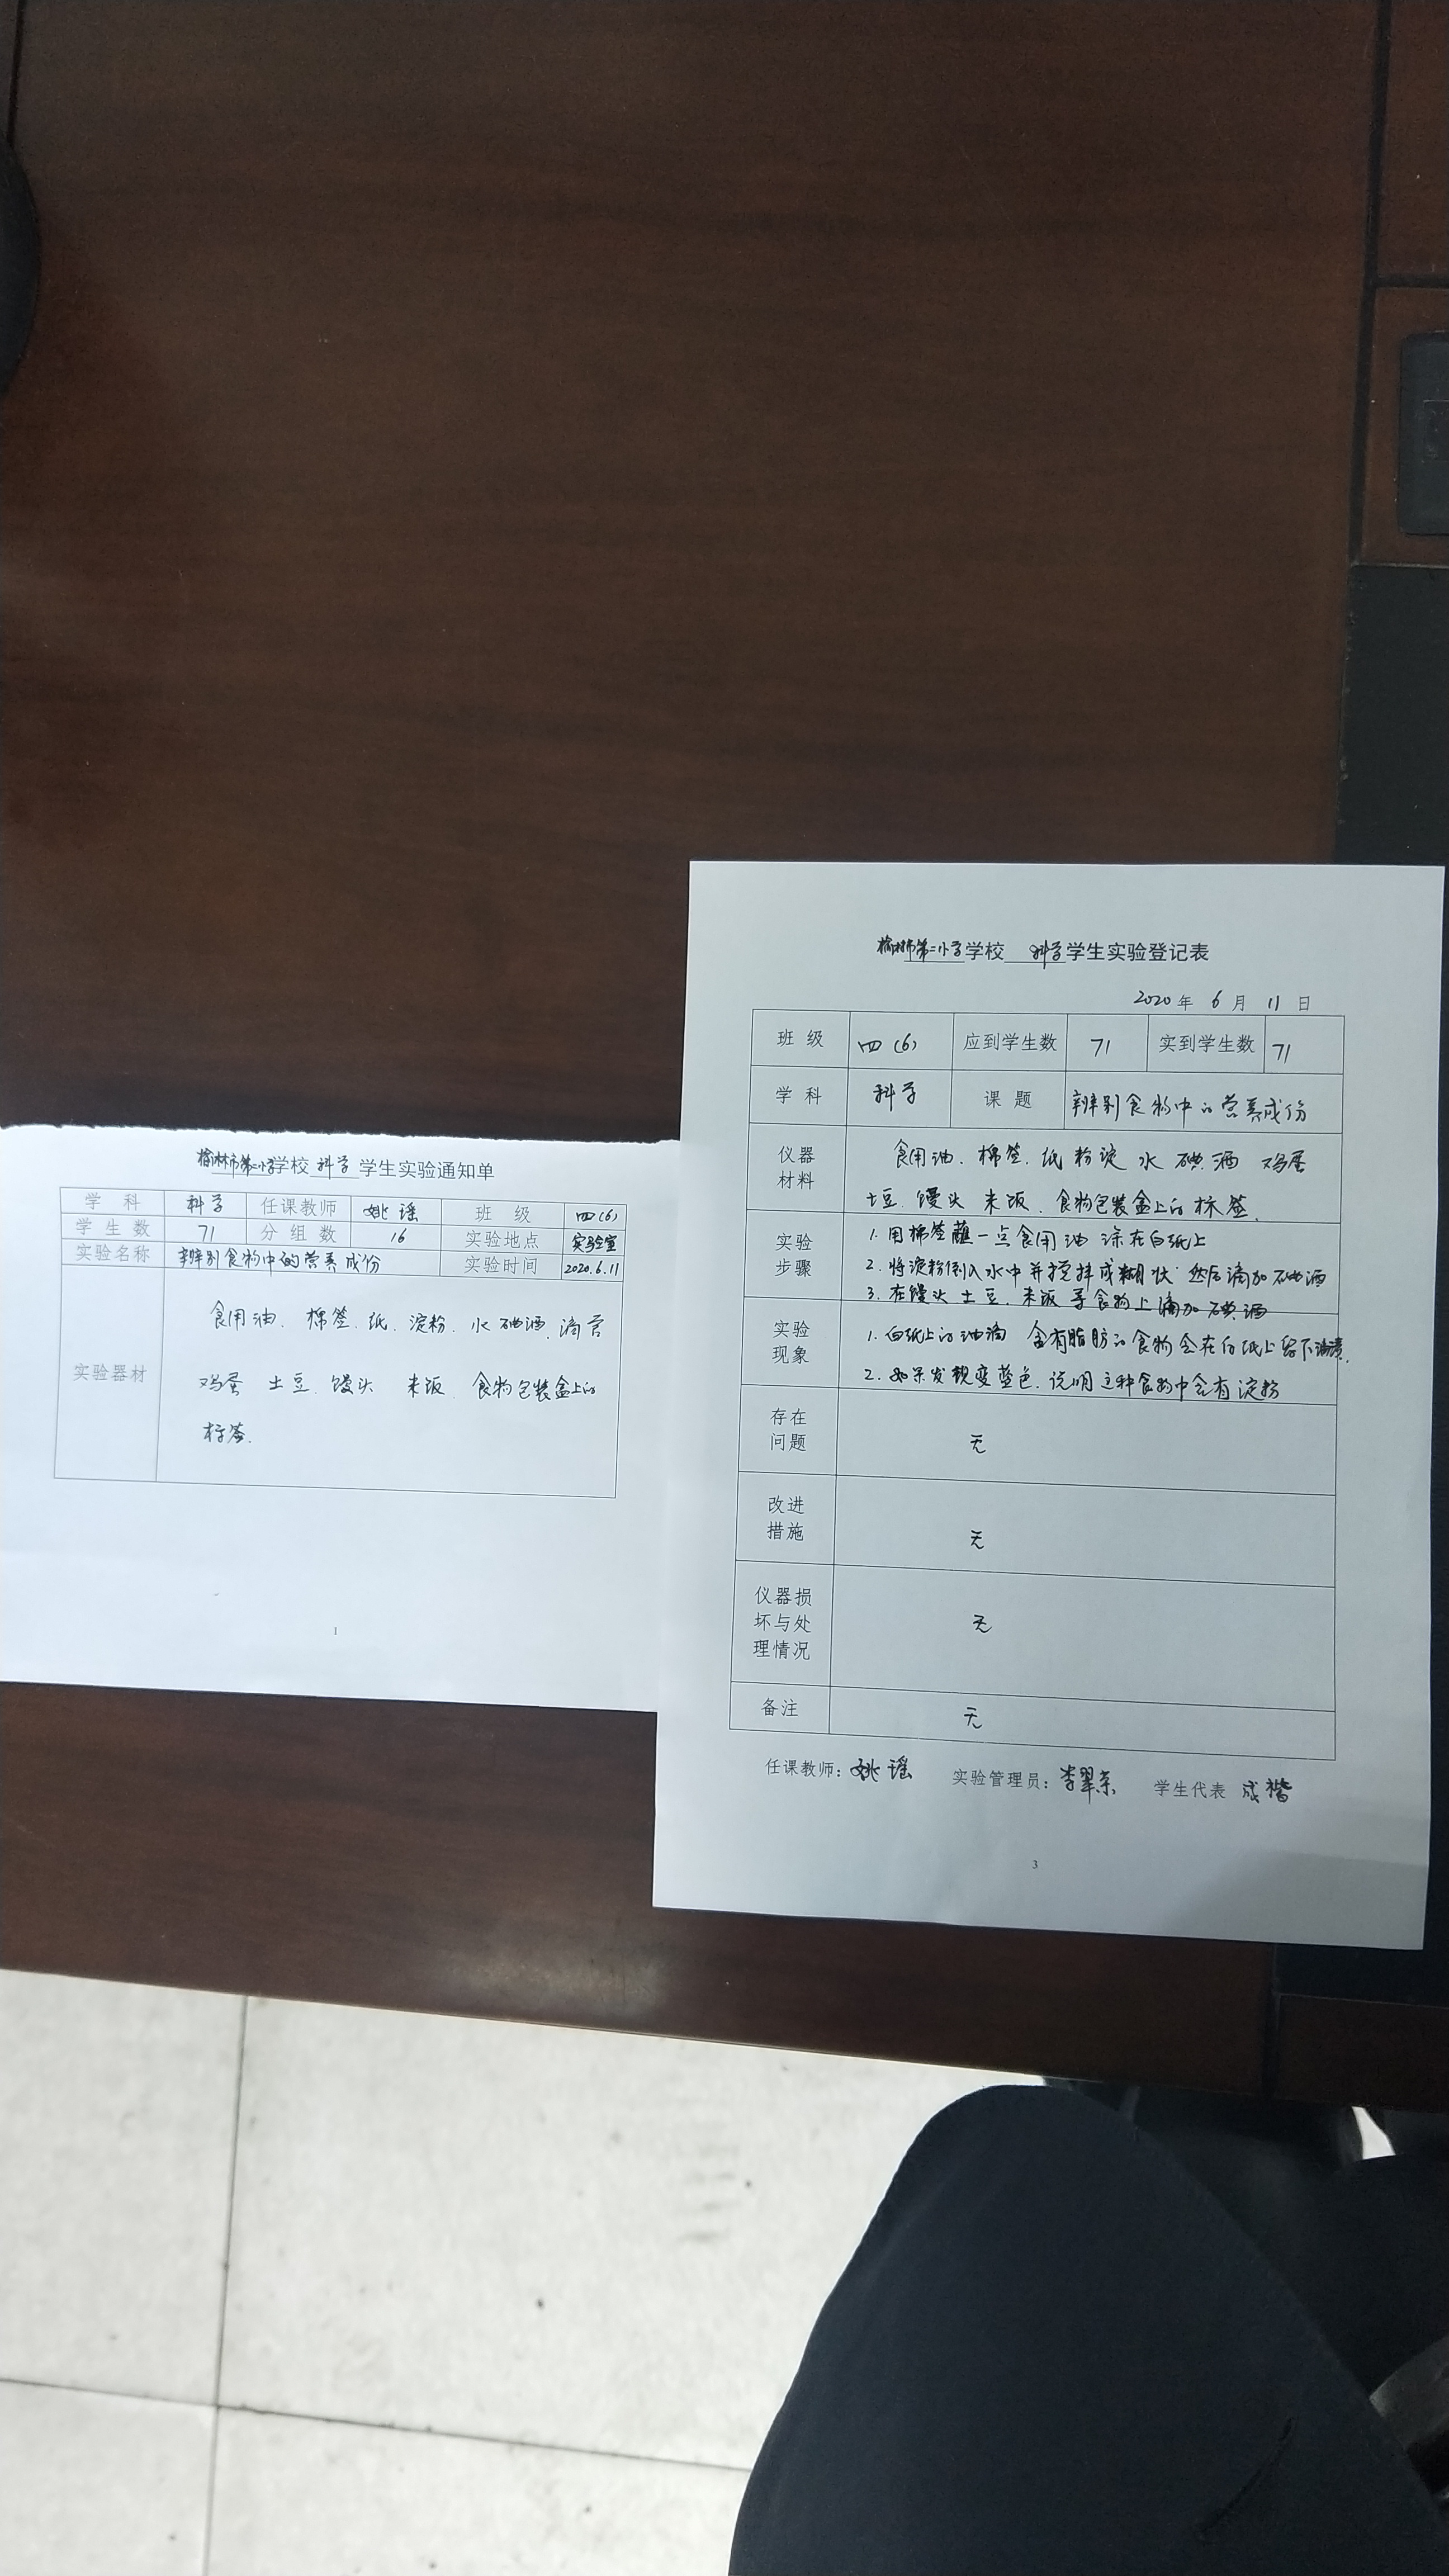 榆林市第二小学学校 科学 学生实验通知单
学科 科学 任课教师 姚瑶 班级 四(6)
学生数 71 分组数 16 实验地点 实验室
实验名称 辨别食物中的营养成份 实验时间 2020.6.11
实验器材
食用油. 棉签. 纸. 淀粉. 水 碘酒. 滴管
鸡蛋 土豆. 馒头 米饭. 食物包装盒上的
标签.
1
榆林市第二小学学校 科学学生实验登记表
2020 年 6 月 11 日
班级 四(6) 应到学生数 71 实到学生数 71
学科 科学 课题 辨别食物中的营养成份
仪器
材料
食用油. 棉签. 纸 粉淀 水 碘酒 鸡蛋
土豆. 馒头 米饭. 食物包装盒上的标签.
实验
步骤
1. 用棉签蘸一点食用油 涂在白纸上
2. 将淀粉倒入水中并搅拌成糊状 然后滴加碘酒
3. 在馒头 土豆. 米饭等食物上滴加碘酒
实验
现象
1. 白纸上的油滴 含有脂肪的食物会在白纸上留下油渍.
2. 如果发现变蓝色. 说明这种食物中含有淀粉
存在
问题
无
改进
措施
无
仪器损
坏与处
理情况
无
备注 无
任课教师：姚瑶 实验管理员：李翠东 学生代表 成楷
3